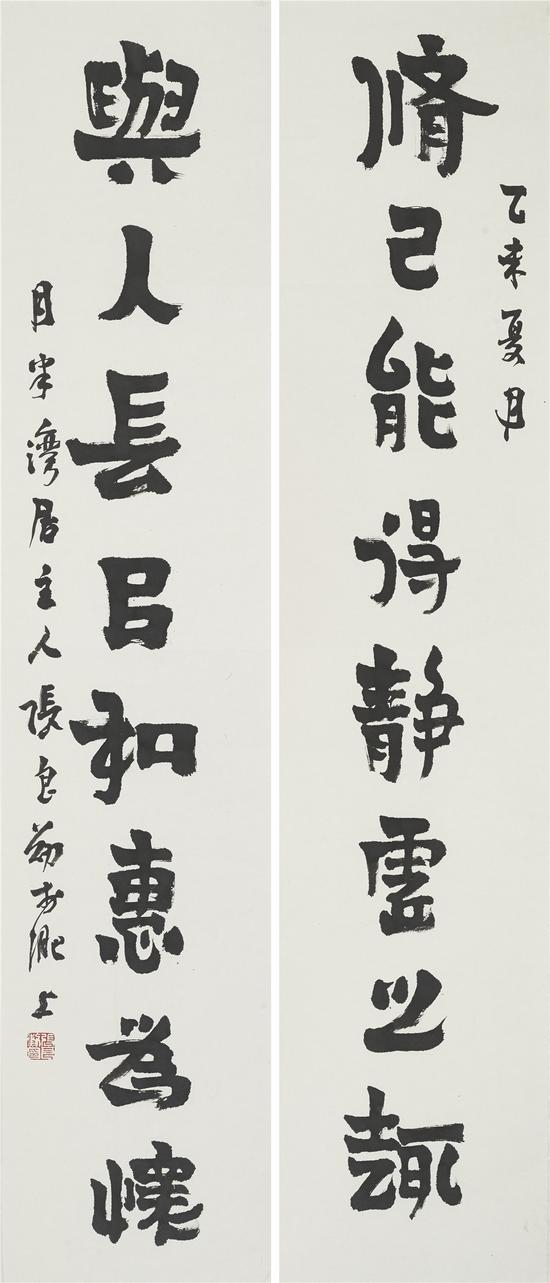 乙未夏月
脩己能得静虚之趣
與人長㠯和惠為懷
月半灣居主人張良勛於肥上